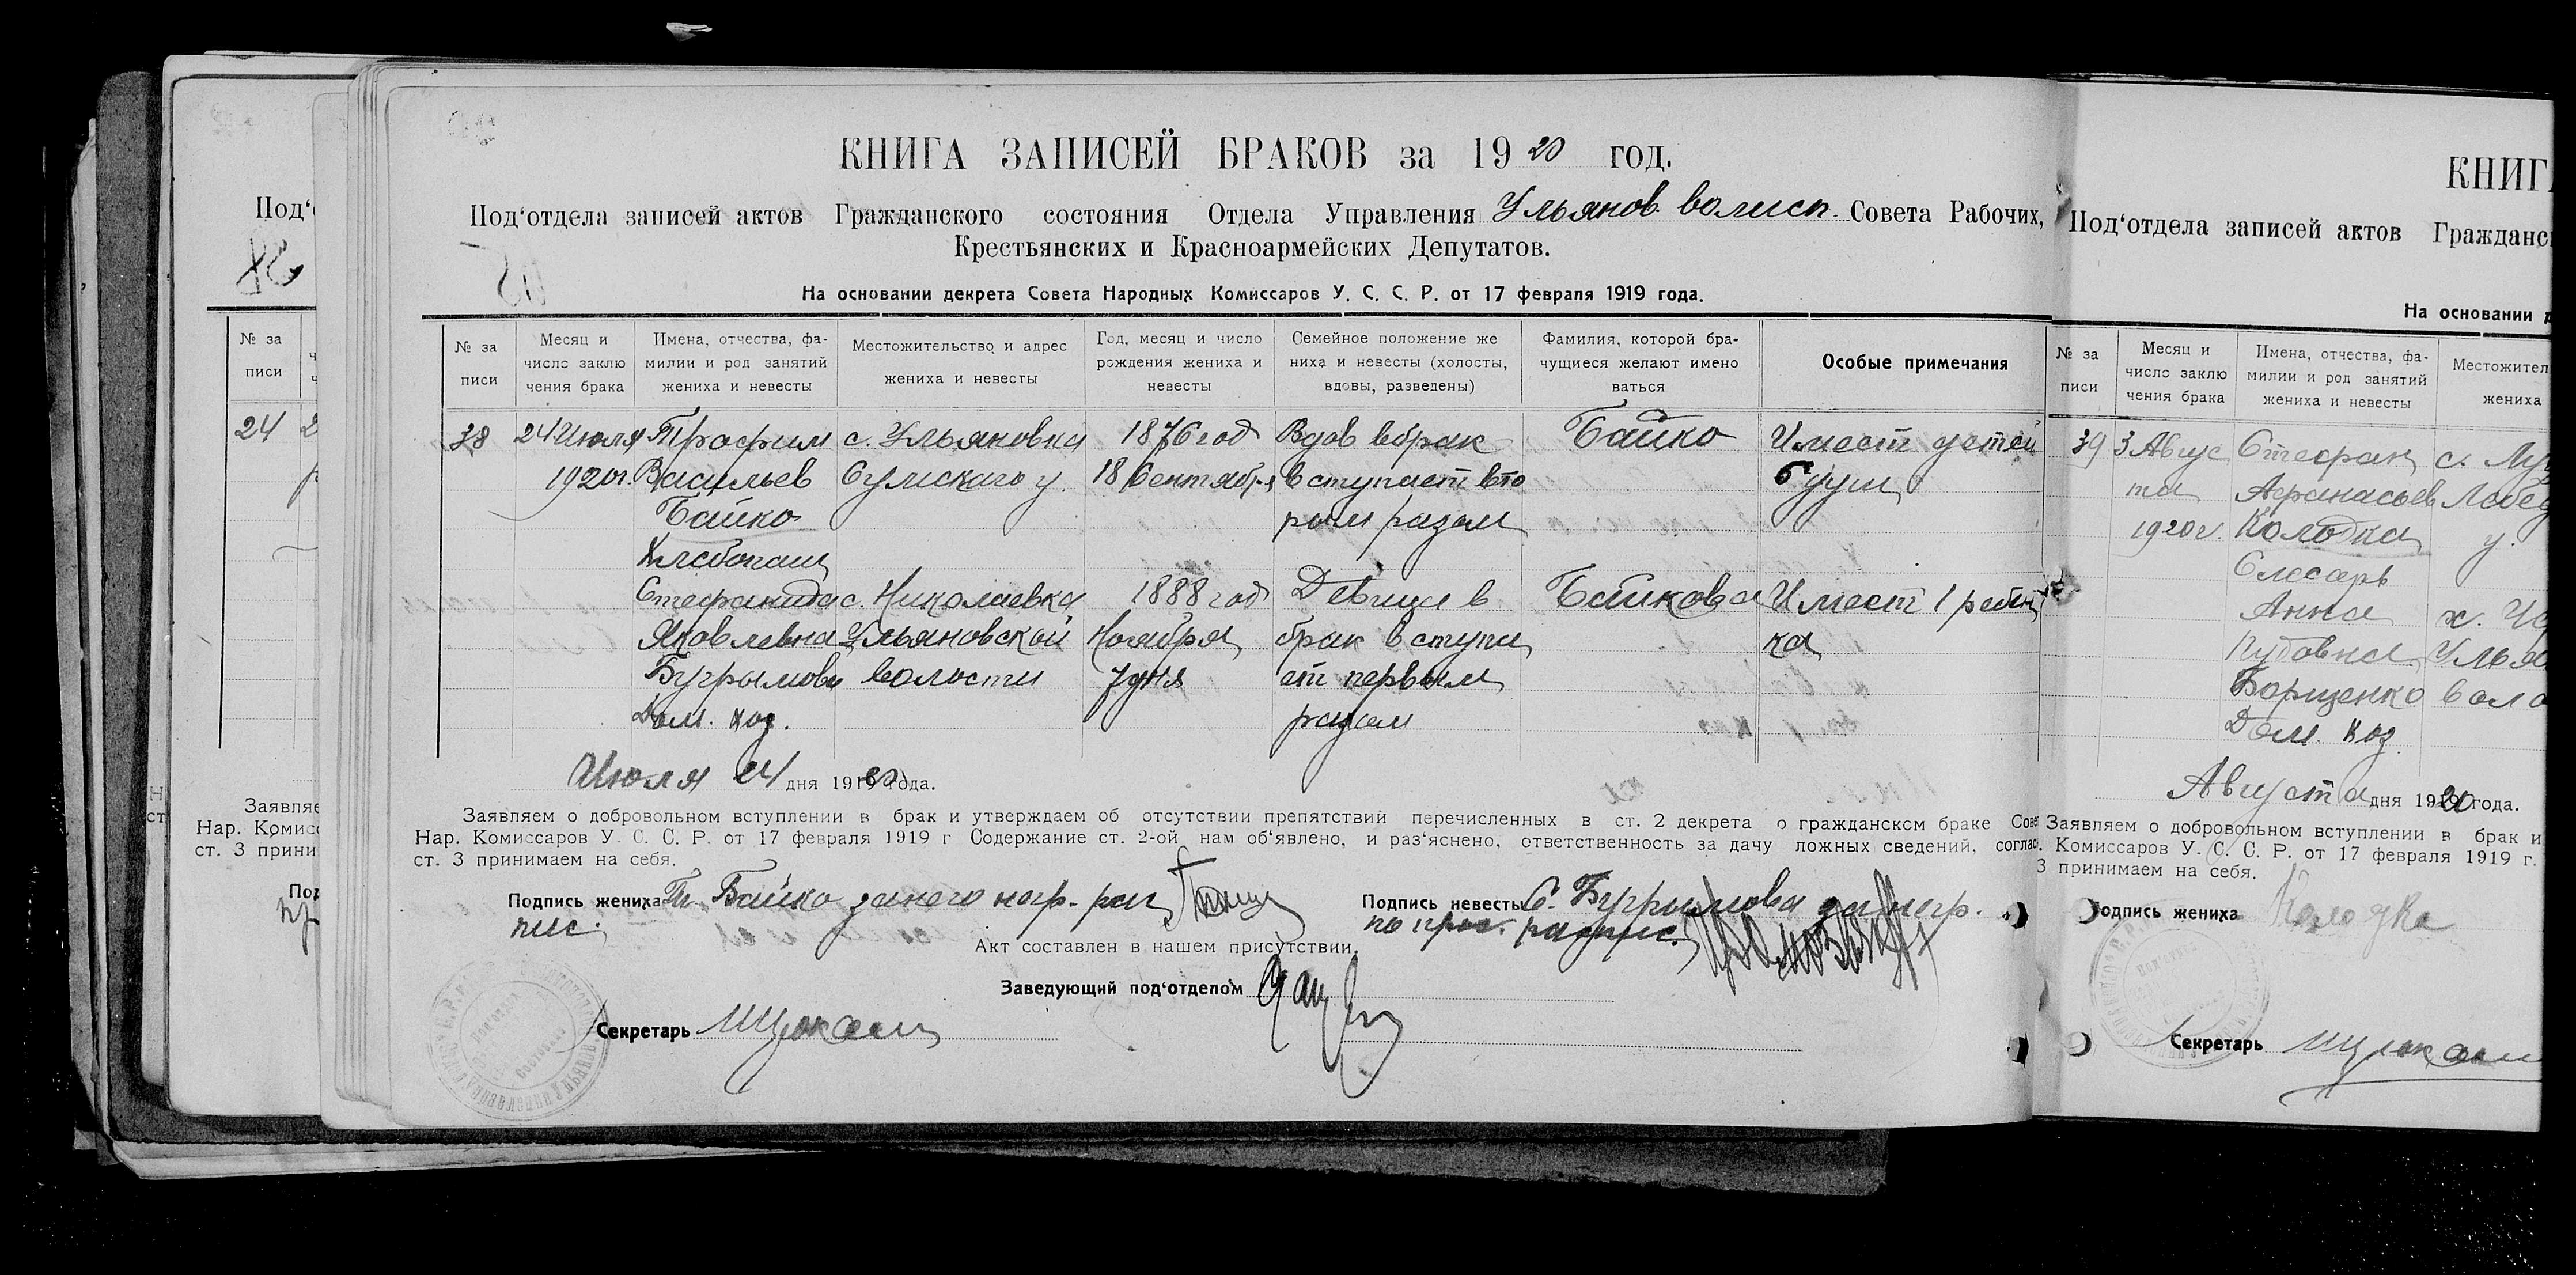 КНИГА ЗАПИСЕЙ БРАКОВ за 1920 год.
Под‘отдела записей актов Гражданского состояния Отдела Управления Ульянов. волисп. Совета Рабочих,
Крестьянских и Красноармейских Депутатов.
На основании декрета Совета Народных Комиссаров У. С. С. Р. от 17 февраля 1919 года.
№ за писи
Месяц и число заклю чения брака
Имена, отчества, фа- милии и род занятий жениха и невесты
Местожительство и адрес жениха и невесты
Год, месяц и число рождения жениха и невесты
Семейное положение же ниха и невесты (холосты, вдовы, разведены)
Фамилия, которой бра- чущиеся желают имено ваться
Особые примечания
38 24 Июля Трофим с. Ульяновка 1876 год Вдов в брак Байко Имеет детей
1920 г. Васильев Сумского у. 18 Сентября вступает вто
Байко рым разом
Хлебопаш
Стефанида с. Николаевка 1888 год Девица в Байкова Имеет 1 ребен
Яковлевна Ульяновской Ноября брак вступа ка
Бугрымова волости 7 дня ет первым
Дом. хоз. разом
Июля 24 дня 1920 года.
Заявляем о добровольном вступлении в брак и утверждаем об отсутствии препятствий перечисленных в ст. 2 декрета о гражданском браке Сове
Нар. Комиссаров У. С. С. Р. от 17 февраля 1919 г Содержание ст. 2-ой нам об‘явлено, и раз‘яснено, ответственность за дачу ложных сведений, соглас
ст. 3 принимаем на себя.
Подпись жениха Тр. Байко за него негр. рас
пис.
Подпись невесты С. Бугрымова за негр.
по прос. распис.
Акт составлен в нашем присутствии.
Заведующий под‘отделом
Секретарь
КНИГ
Под‘отдела записей актов Гражданс
На основании д
№ за писи
Месяц и число заклю чения брака
Имена, отчества, фа- милии и род занятий жениха и невесты
Местожител жениха
39 3 Авгус Стефан
та Афанасьев
1920 г. Колодка у.
Слесарь
Анна
Пудовна
Борщенко
Дом. хоз.
Августа дня 1920 года.
Заявляем о добровольном вступлении в брак и
. Комиссаров У. С. С. Р. от 17 февраля 1919 г.
3 принимаем на себя.
Подпись жениха Колодка
Секретарь
Под‘
№ за писи
24
Заявляе
Нар. Комисс
ст. 3 прини
Под